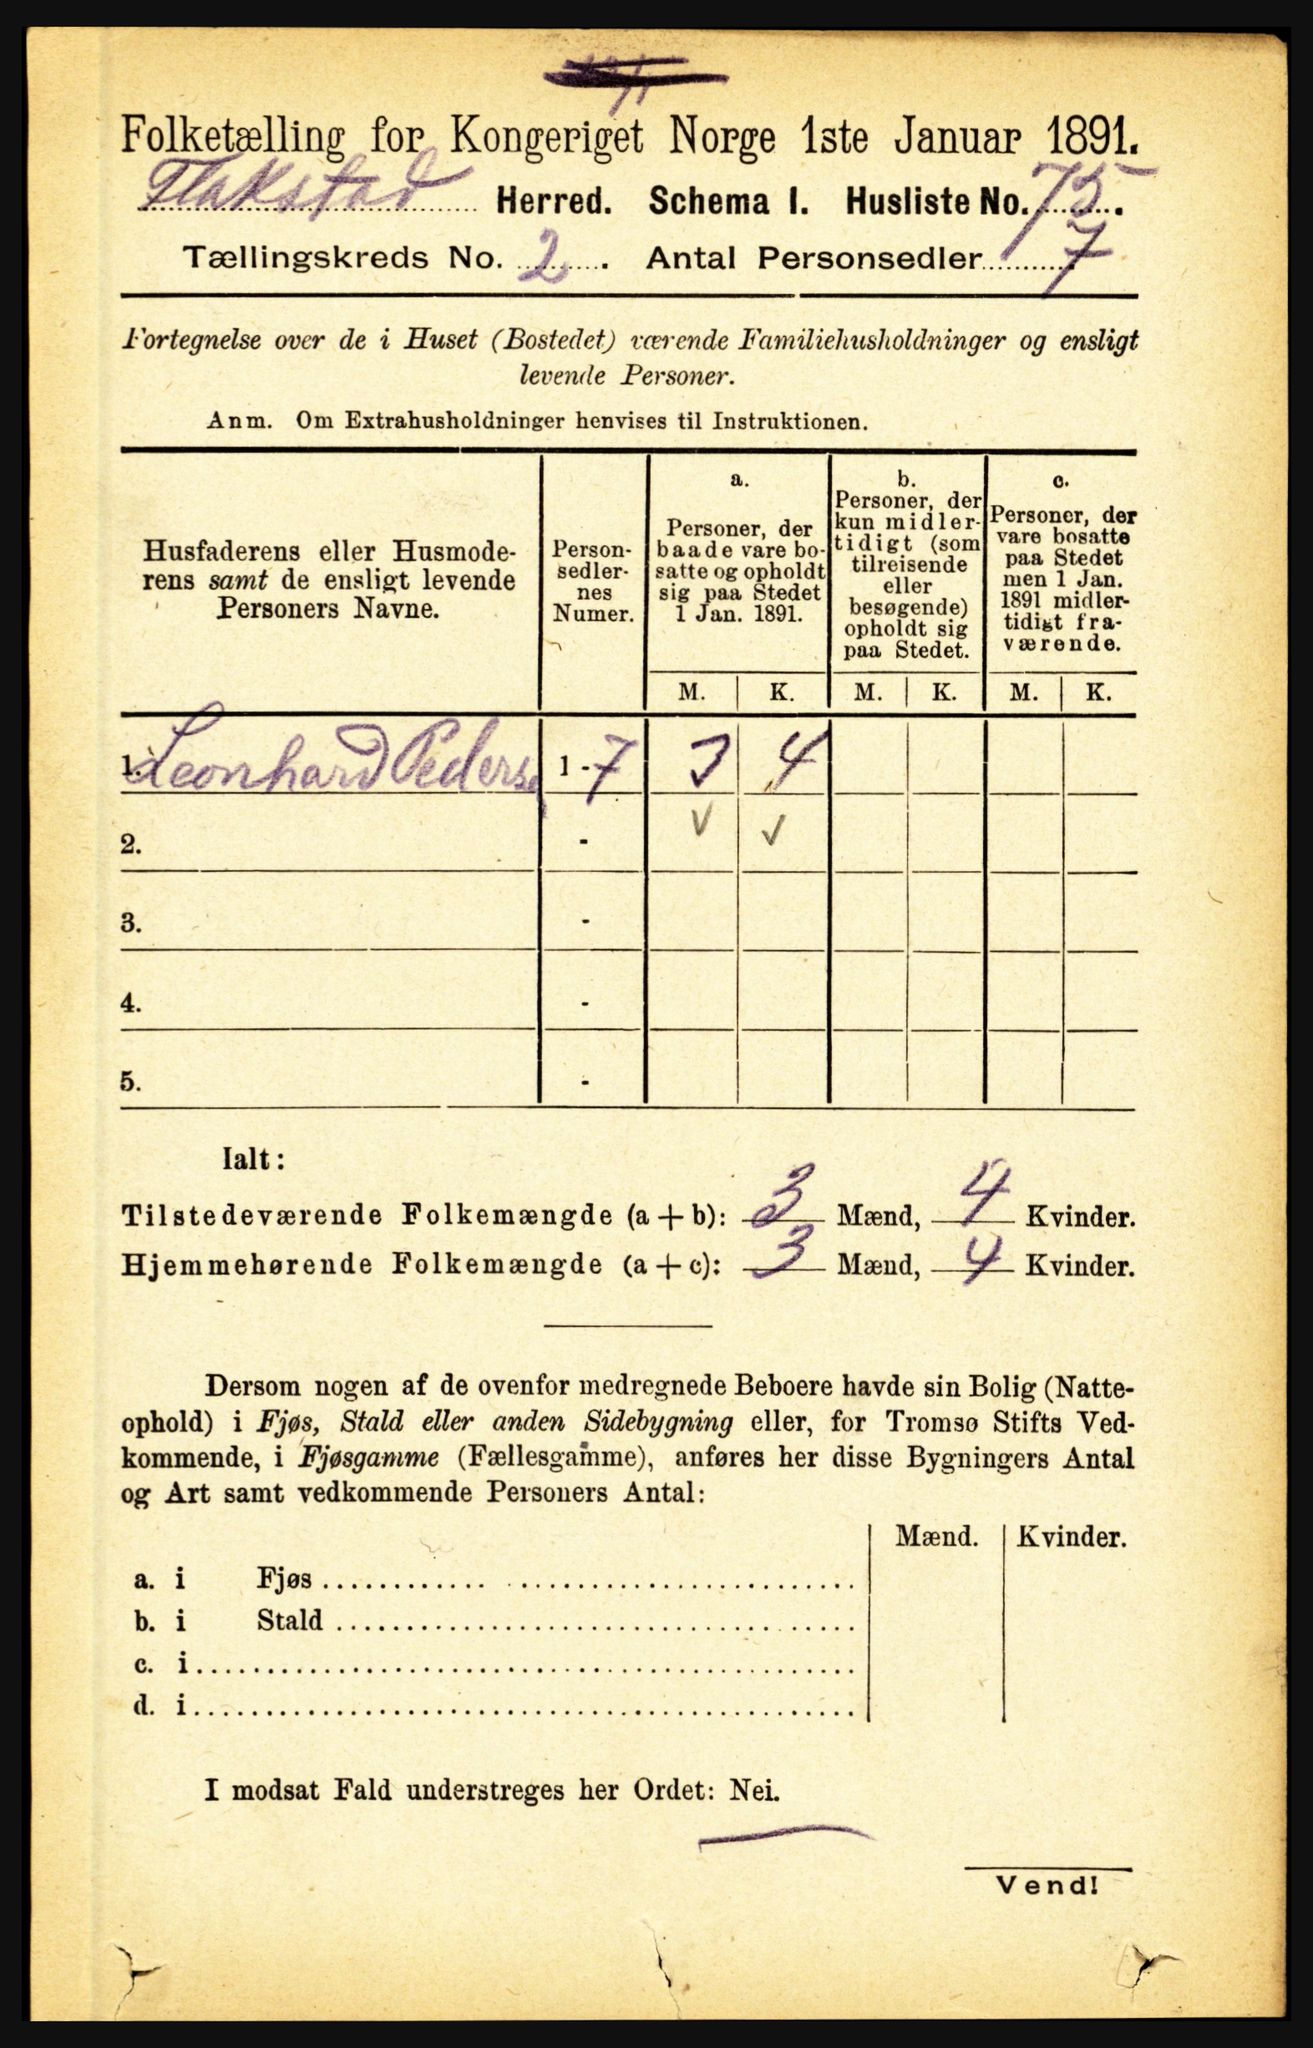 Folketælling for Kongeriget Norge 1ste Januar 1891.
Flakstad Herred. Schema I. Husliste No. 75.
Tællingskreds No. 2. Antal Personsedler 7
Fortegnelse over de i Huset (Bostedet) værende Familiehusholdninger og ensligt
levende Personer.
Anm. Om Extrahusholdninger henvises til Instruktionen.
Husfaderens eller Husmode-
rens samt de ensligt levende
Personers Navne.
Person-
sedler-
nes
Numer.
a.
Personer, der
baade vare bo-
satte og opholdt
sig paa Stedet
1 Jan. 1891.
b.
Personer, der
kun midler-
tidigt (som
tilreisende
eller
besøgende)
opholdt sig
paa Stedet.
c.
Personer, der
vare bosatte
paa Stedet
men 1 Jan.
1891 midler-
tidigt fra-
værende.
M. K. M. K. M. K.
1. Leonhard Pederse 1 - 7 3 4
2. -
3. -
4. -
5. -
Ialt:
Tilstedeværende Folkemængde (a + b): 3 Mænd, 4 Kvinder.
Hjemmehørende Folkemængde (a + c): 3 Mænd, 4 Kvinder.
Dersom nogen af de ovenfor medregnede Beboere havde sin Bolig (Natte-
ophold) i Fjøs, Stald eller anden Sidebygning eller, for Tromsø Stifts Ved-
kommende, i Fjøsgamme (Fællesgamme), anføres her disse Bygningers Antal
og Art samt vedkommende Personers Antal:
Mænd. Kvinder.
a. i Fjøs
b. i Stald
c. i
d. i
I modsat Fald understreges her Ordet: Nei.
Vend!